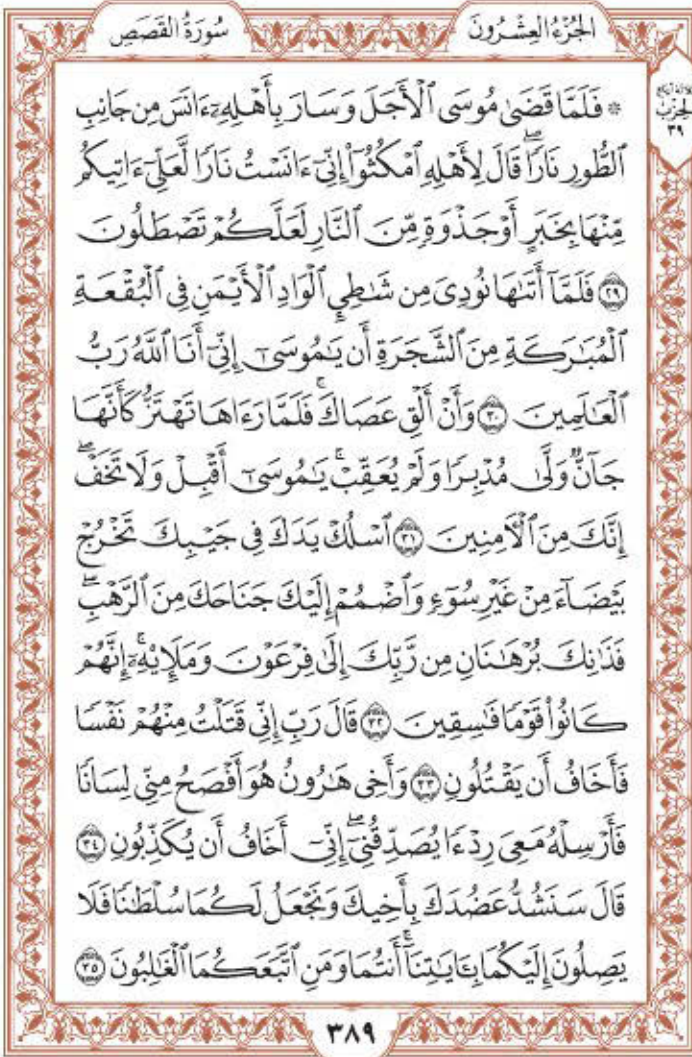 سُورَةُ القَصَصِ الجُزْءُ العِشْرُونَ
۞ فَلَمَّا قَضَىٰ مُوسَى ٱلْأَجَلَ وَسَارَ بِأَهْلِهِۦٓ ءَانَسَ مِن جَانِبِ
ٱلطُّورِ نَارًاۖ قَالَ لِأَهْلِهِ ٱمْكُثُوٓا۟ إِنِّىٓ ءَانَسْتُ نَارًا لَّعَلِّىٓ ءَاتِيكُم
مِّنْهَا بِخَبَرٍ أَوْ جَذْوَةٍ مِّنَ ٱلنَّارِ لَعَلَّكُمْ تَصْطَلُونَ
۝٢٩ فَلَمَّآ أَتَىٰهَا نُودِىَ مِن شَٰطِئِ ٱلْوَادِ ٱلْأَيْمَنِ فِى ٱلْبُقْعَةِ
ٱلْمُبَٰرَكَةِ مِنَ ٱلشَّجَرَةِ أَن يَٰمُوسَىٰٓ إِنِّىٓ أَنَا ٱللَّهُ رَبُّ
ٱلْعَٰلَمِينَ ۝٣٠ وَأَنْ أَلْقِ عَصَاكَۚ فَلَمَّا رَءَاهَا تَهْتَزُّ كَأَنَّهَا
جَآنٌّ وَلَّىٰ مُدْبِرًا وَلَمْ يُعَقِّبْۚ يَٰمُوسَىٰٓ أَقْبِلْ وَلَا تَخَفْۖ
إِنَّكَ مِنَ ٱلْءَامِنِينَ ۝٣١ ٱسْلُكْ يَدَكَ فِى جَيْبِكَ تَخْرُجْ
بَيْضَآءَ مِنْ غَيْرِ سُوٓءٍ وَٱضْمُمْ إِلَيْكَ جَنَاحَكَ مِنَ ٱلرَّهْبِۖ
فَذَٰنِكَ بُرْهَٰنَانِ مِن رَّبِّكَ إِلَىٰ فِرْعَوْنَ وَمَلَإِي۟هِۦٓۚ إِنَّهُمْ
كَانُوا۟ قَوْمًا فَٰسِقِينَ ۝٣٢ قَالَ رَبِّ إِنِّى قَتَلْتُ مِنْهُمْ نَفْسًا
فَأَخَافُ أَن يَقْتُلُونِ ۝٣٣ وَأَخِى هَٰرُونُ هُوَ أَفْصَحُ مِنِّى لِسَانًا
فَأَرْسِلْهُ مَعِىَ رِدْءًا يُصَدِّقُنِىٓۖ إِنِّىٓ أَخَافُ أَن يُكَذِّبُونِ ۝٣٤
قَالَ سَنَشُدُّ عَضُدَكَ بِأَخِيكَ وَنَجْعَلُ لَكُمَا سُلْطَٰنًا فَلَا
يَصِلُونَ إِلَيْكُمَا بِـَٔايَٰتِنَآۚ أَنتُمَا وَمَنِ ٱتَّبَعَكُمَا ٱلْغَٰلِبُونَ ۝٣٥
٣٨٩
الحِزْبِ
٣٩